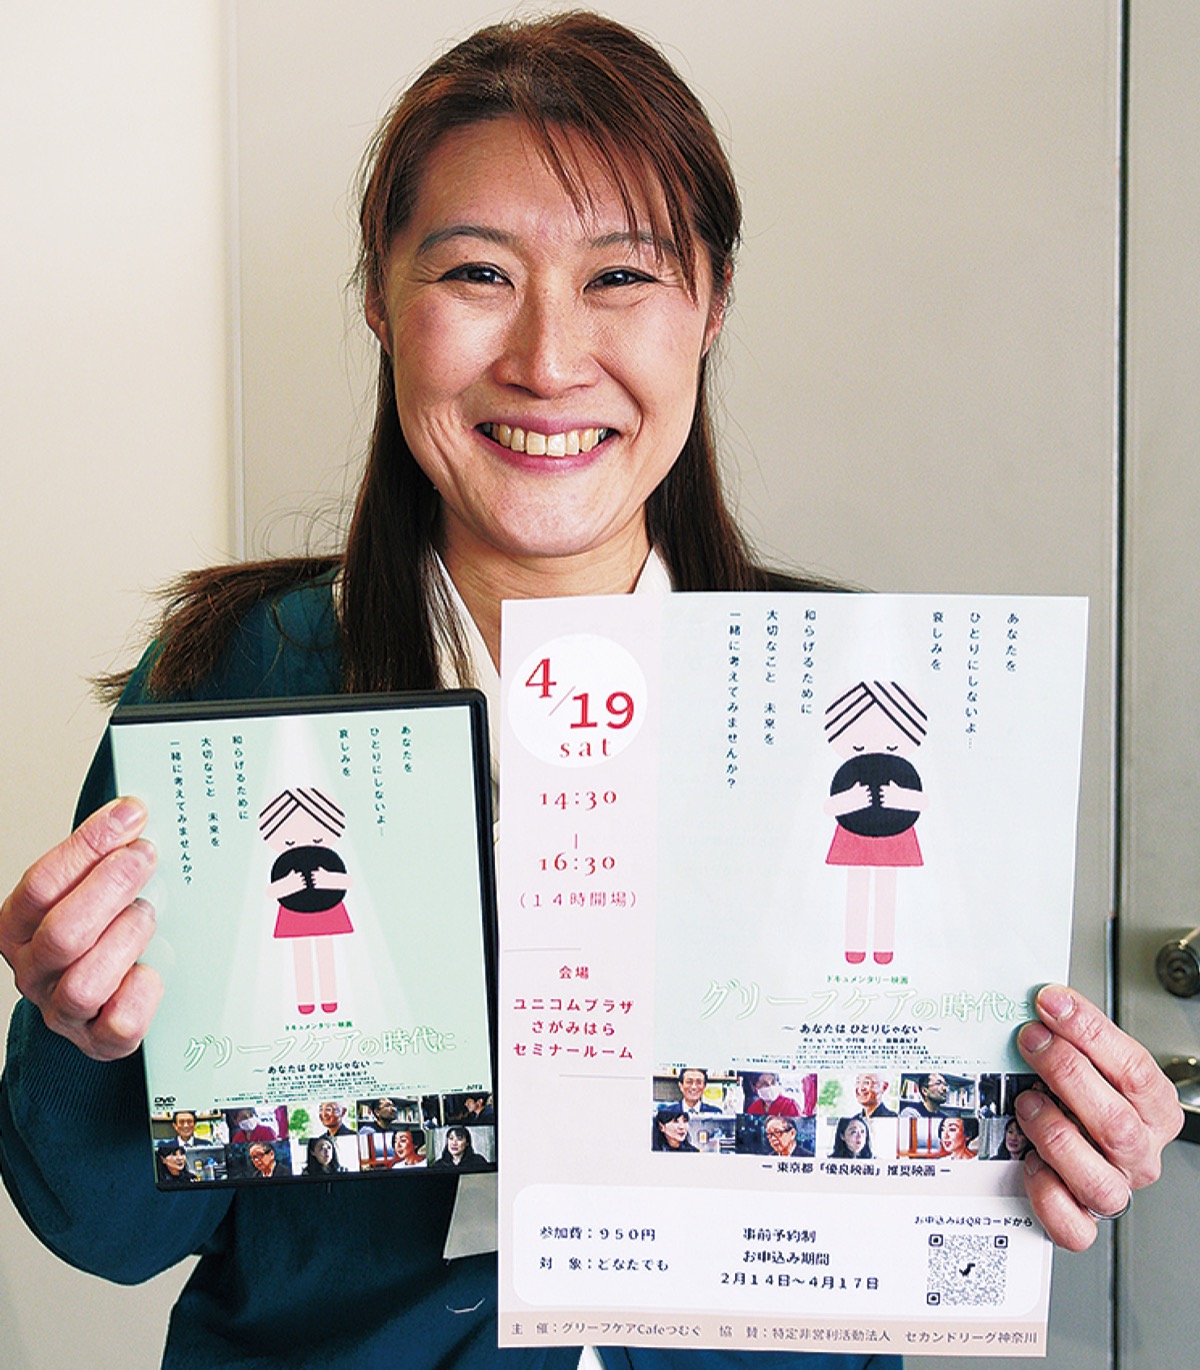 あなたを
ひとりにしないよ…
哀しみを
和らげるために
大切なこと 未来を
一緒に考えてみませんか?
ドキュメンタリー映画
グリーフケアの時代に
～あなたは ひとりじゃない～
DVD
4/19
sat
14:30
|
16:30
(14時開場)
会場
ユニコムプラザ
さがみはら
セミナールーム
あなたを
ひとりにしないよ…
哀しみを
和らげるために
大切なこと 未来を
一緒に考えてみませんか?
ドキュメンタリー映画
グリーフケアの時代に
～あなたは ひとりじゃない～
ー東京都「優良映画」推奨映画ー
参加費：950円
対 象：どなたでも
事前予約制
お申込み期間
2月14日～4月17日
お申込みはQRコードから
主 催：グリーフケアCafeつむぐ 協 賛：特定非営利活動法人 セカンドリーグ神奈川